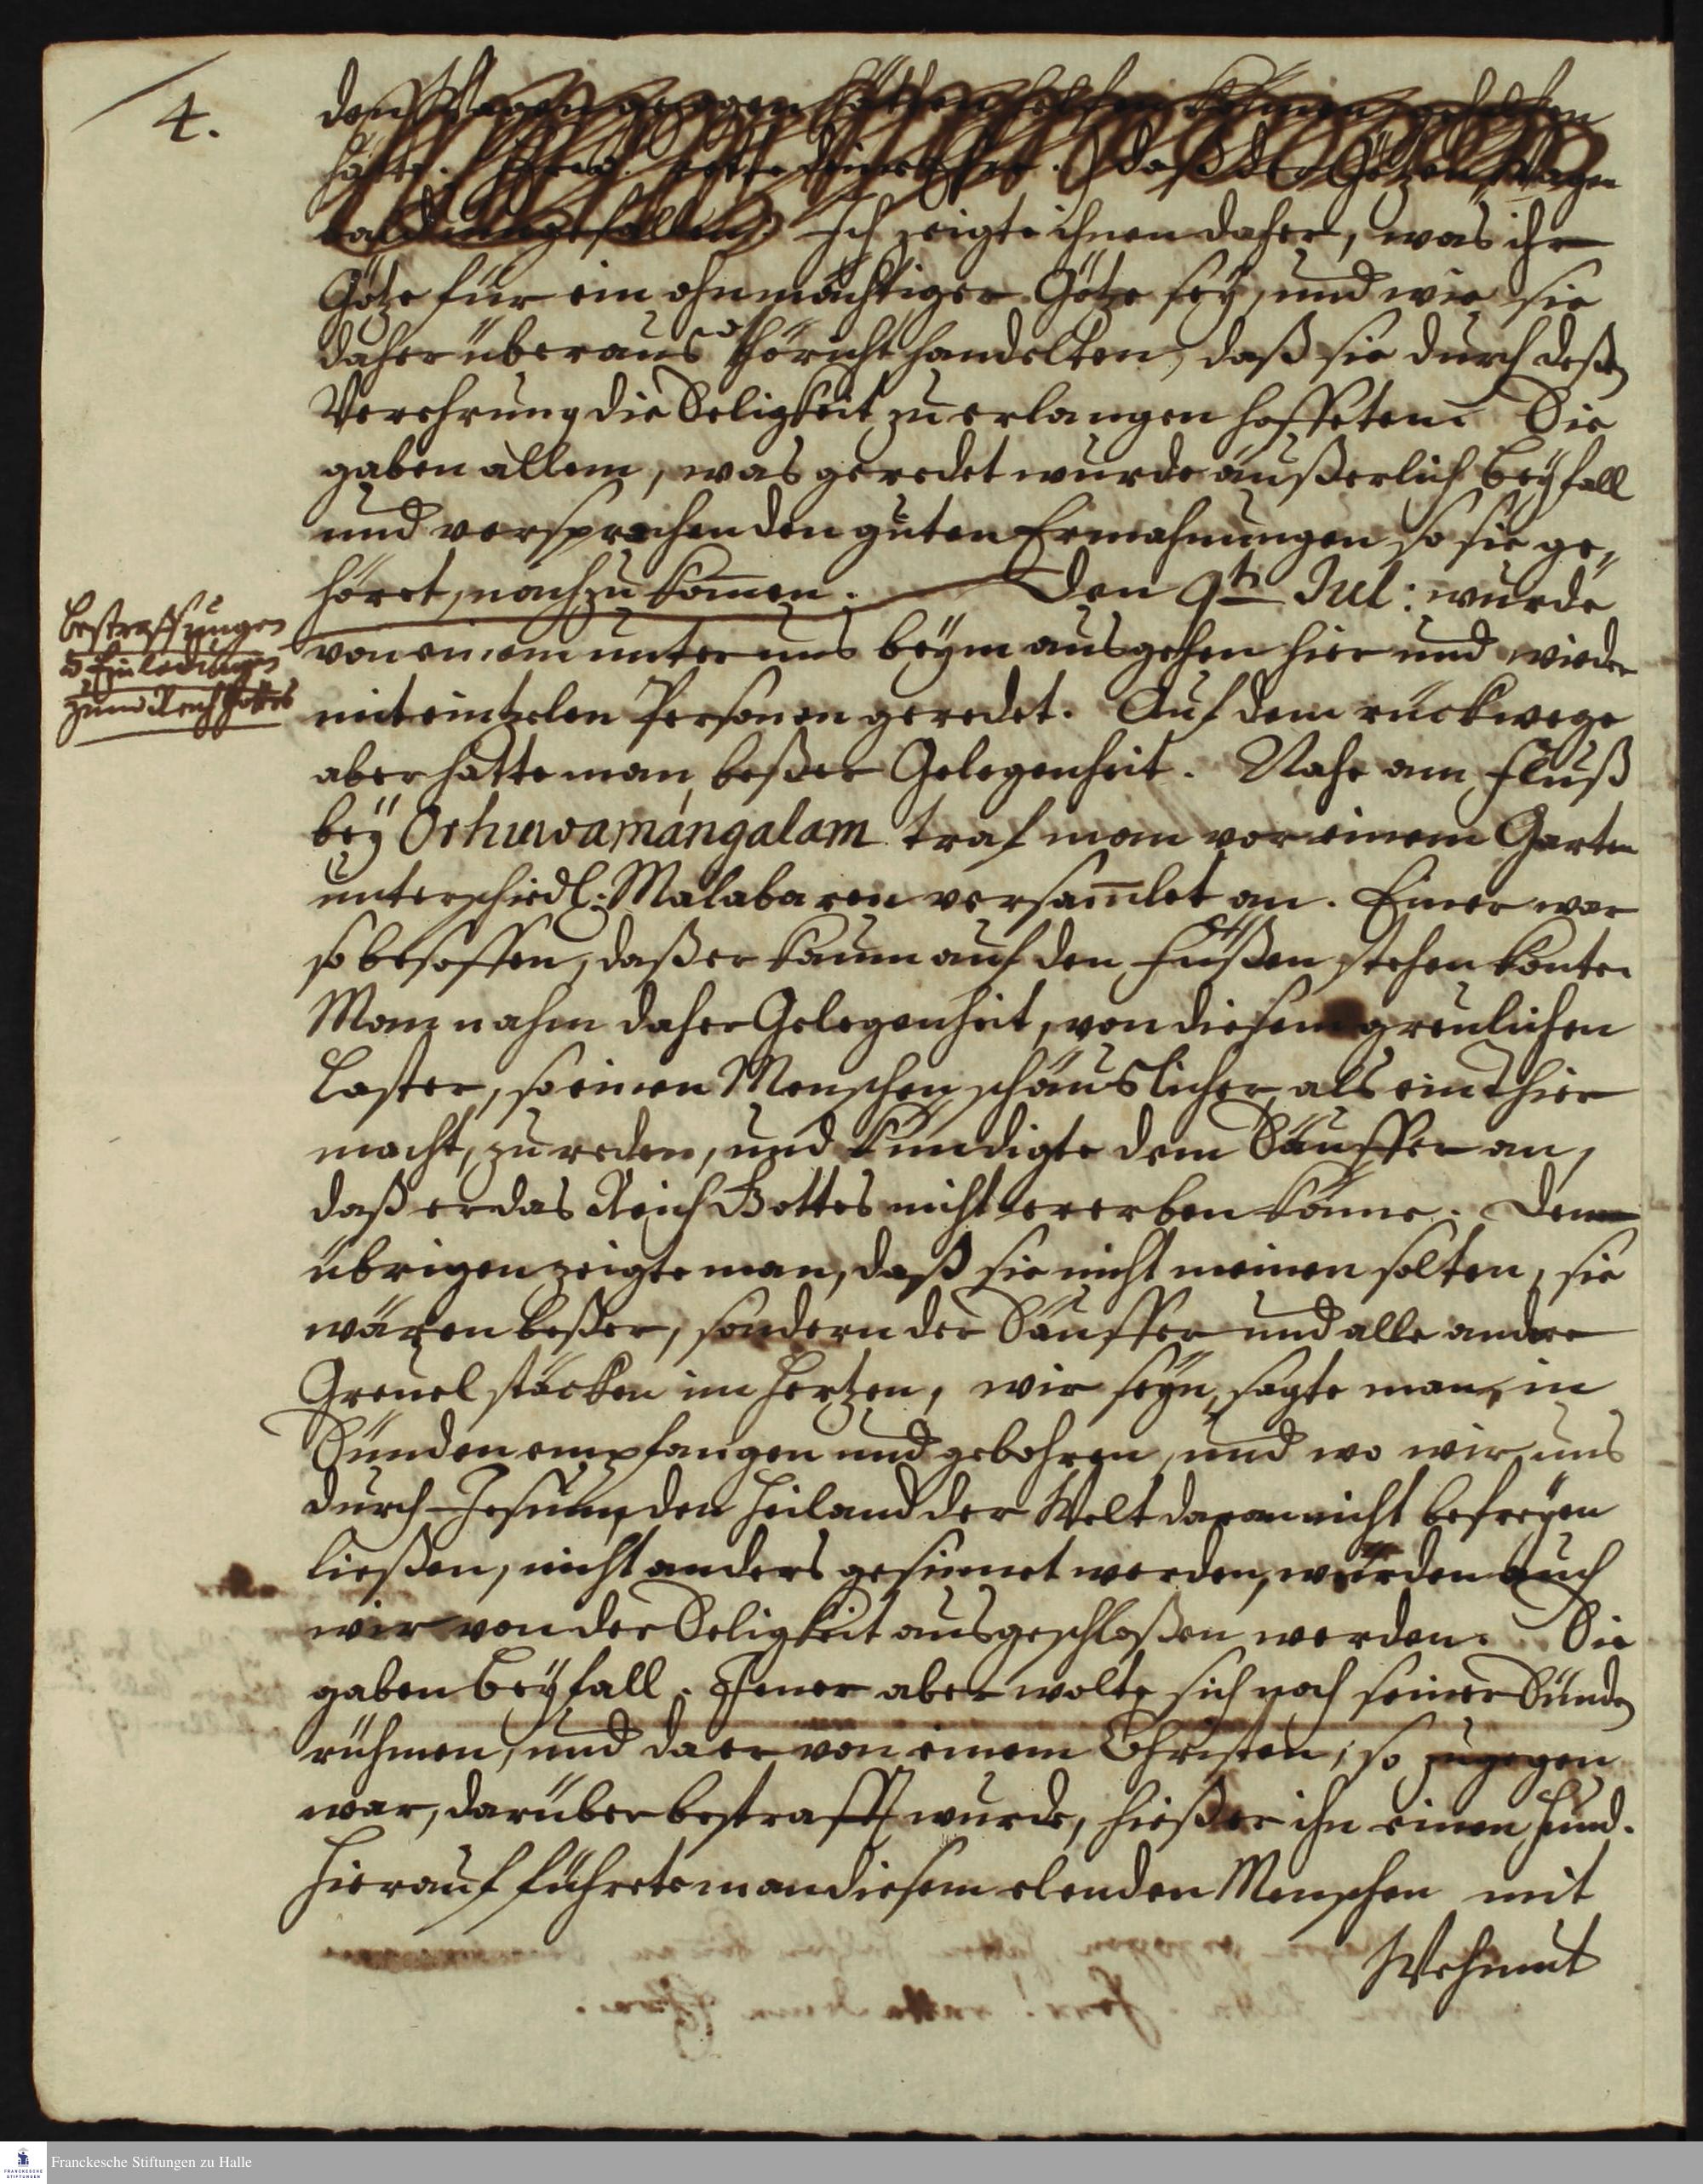 4.
den Wagen gezogen hätten helfen können, geholfen
hätte. Herr! rette deine Ehre.) daß der Götzen-Wagen
bald umgefallen. Ich zeigte ihnen daher, was ihr
Götze für ein ohnmächtiger Götze sey, und wie sie
daher überaus thöricht handelten, daß sie durch deßen
Verehrung die Seligkeit zu erlangen hoffeten. Sie
gaben allem, was geredet wurde äußerlich Beyfall
und versprachen den guten Ermahnungen so sie ge-
höret, nachzukom̄en. Den 9t. Jul: wurde
Bestraffungen
u Einladungen
zum Reich Gottes
von einem unter uns beym ausgehen hier und wieder
mit eintzelen Personen geredet. Auf dem rückwege
aber hatte man beßer Gelegenheit. Nahe am Fluß
bey Orhuwamángalam traf man vor einem Garten
unterschiedl: Malabaren versam̄let an. Einer war
so besoffen, daß er kaum auf den Füßen stehen konte.
Man nahm daher Gelegenheit, von diesem greulichen
Laster, so einen Menschen scheuslicher, als ein Thier
macht, zu reden, und kündigte dem Säuffer an,
daß er das Reich Gottes nicht ererben könne. Den
übrigen zeigte man, daß sie nicht meinen solten, sie
wären beßer, sondern der Säuffer und alle andere
Greuel stäcken im Hertzen, wir seyn, sagte man, in
Sünden empfangen und gebohren, und wo wir uns
durch Jesum, den Heiland der Welt davon nicht befreyen
ließen, nicht anders gesinnet werden, würden auch
wir von der Seligkeit ausgeschloßen werden. Sie
gaben Beyfall. Jener aber wolte sich noch seiner Sünden
rühmen, und da er von einem Christen, so zugegen
war, darüber bestrafft wurde, hieß er ihn einen Hund.
Hierauf führete man diesem elenden Menschen mit
Wehmut
Franckesche Stiftungen zu Halle